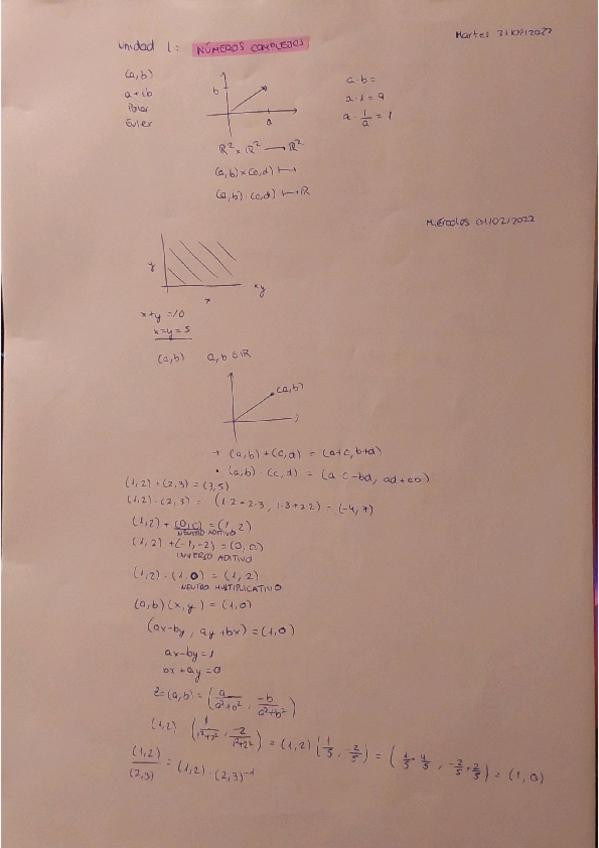 Unidad 1: NÚMEROS COMPLEJOS
Martes 31/01/2022
(a,b)
a+ib
Polar
Euler
b
a
a·b=
a·1=a
a·1/a=1
R²×R²→R²
(a,b)×(c,d) ↦
(a,b)·(c,d) ↦ R
Miércoles 01/02/2022
y
x
xy
x+y=10
x=y=5
(a,b) a,b∈R
(a,b)
+ (a,b)+(c,d) = (a+c, b+d)
• (a,b)·(c,d) = (a·c-bd, ad+cb)
(1,2)+(2,3)=(3,5)
(1,2)·(2,3) = (1·2-2·3, 1·3+2·2) = (-4,7)
(1,2)+(0,0)=(1,2)
NEUTRO ADITIVO
(1,2)+(-1,-2)=(0,0)
INVERSO ADITIVO
(1,2)·(1,0)=(1,2)
NEUTRO MULTIPLICATIVO
(a,b)(x,y)=(1,0)
(ax-by, ay+bx)=(1,0)
ax-by=1
bx+ay=0
z=(a,b)=(a/(a²+b²), -b/(a²+b²))
(1,2)·(1/(1²+2²), -2/(1²+2²)) = (1,2)(1/5, -2/5) = (1/5+4/5, -2/5+2/5) = (1,0)
(1,2)/(2,3) = (1,2)·(2,3)⁻¹